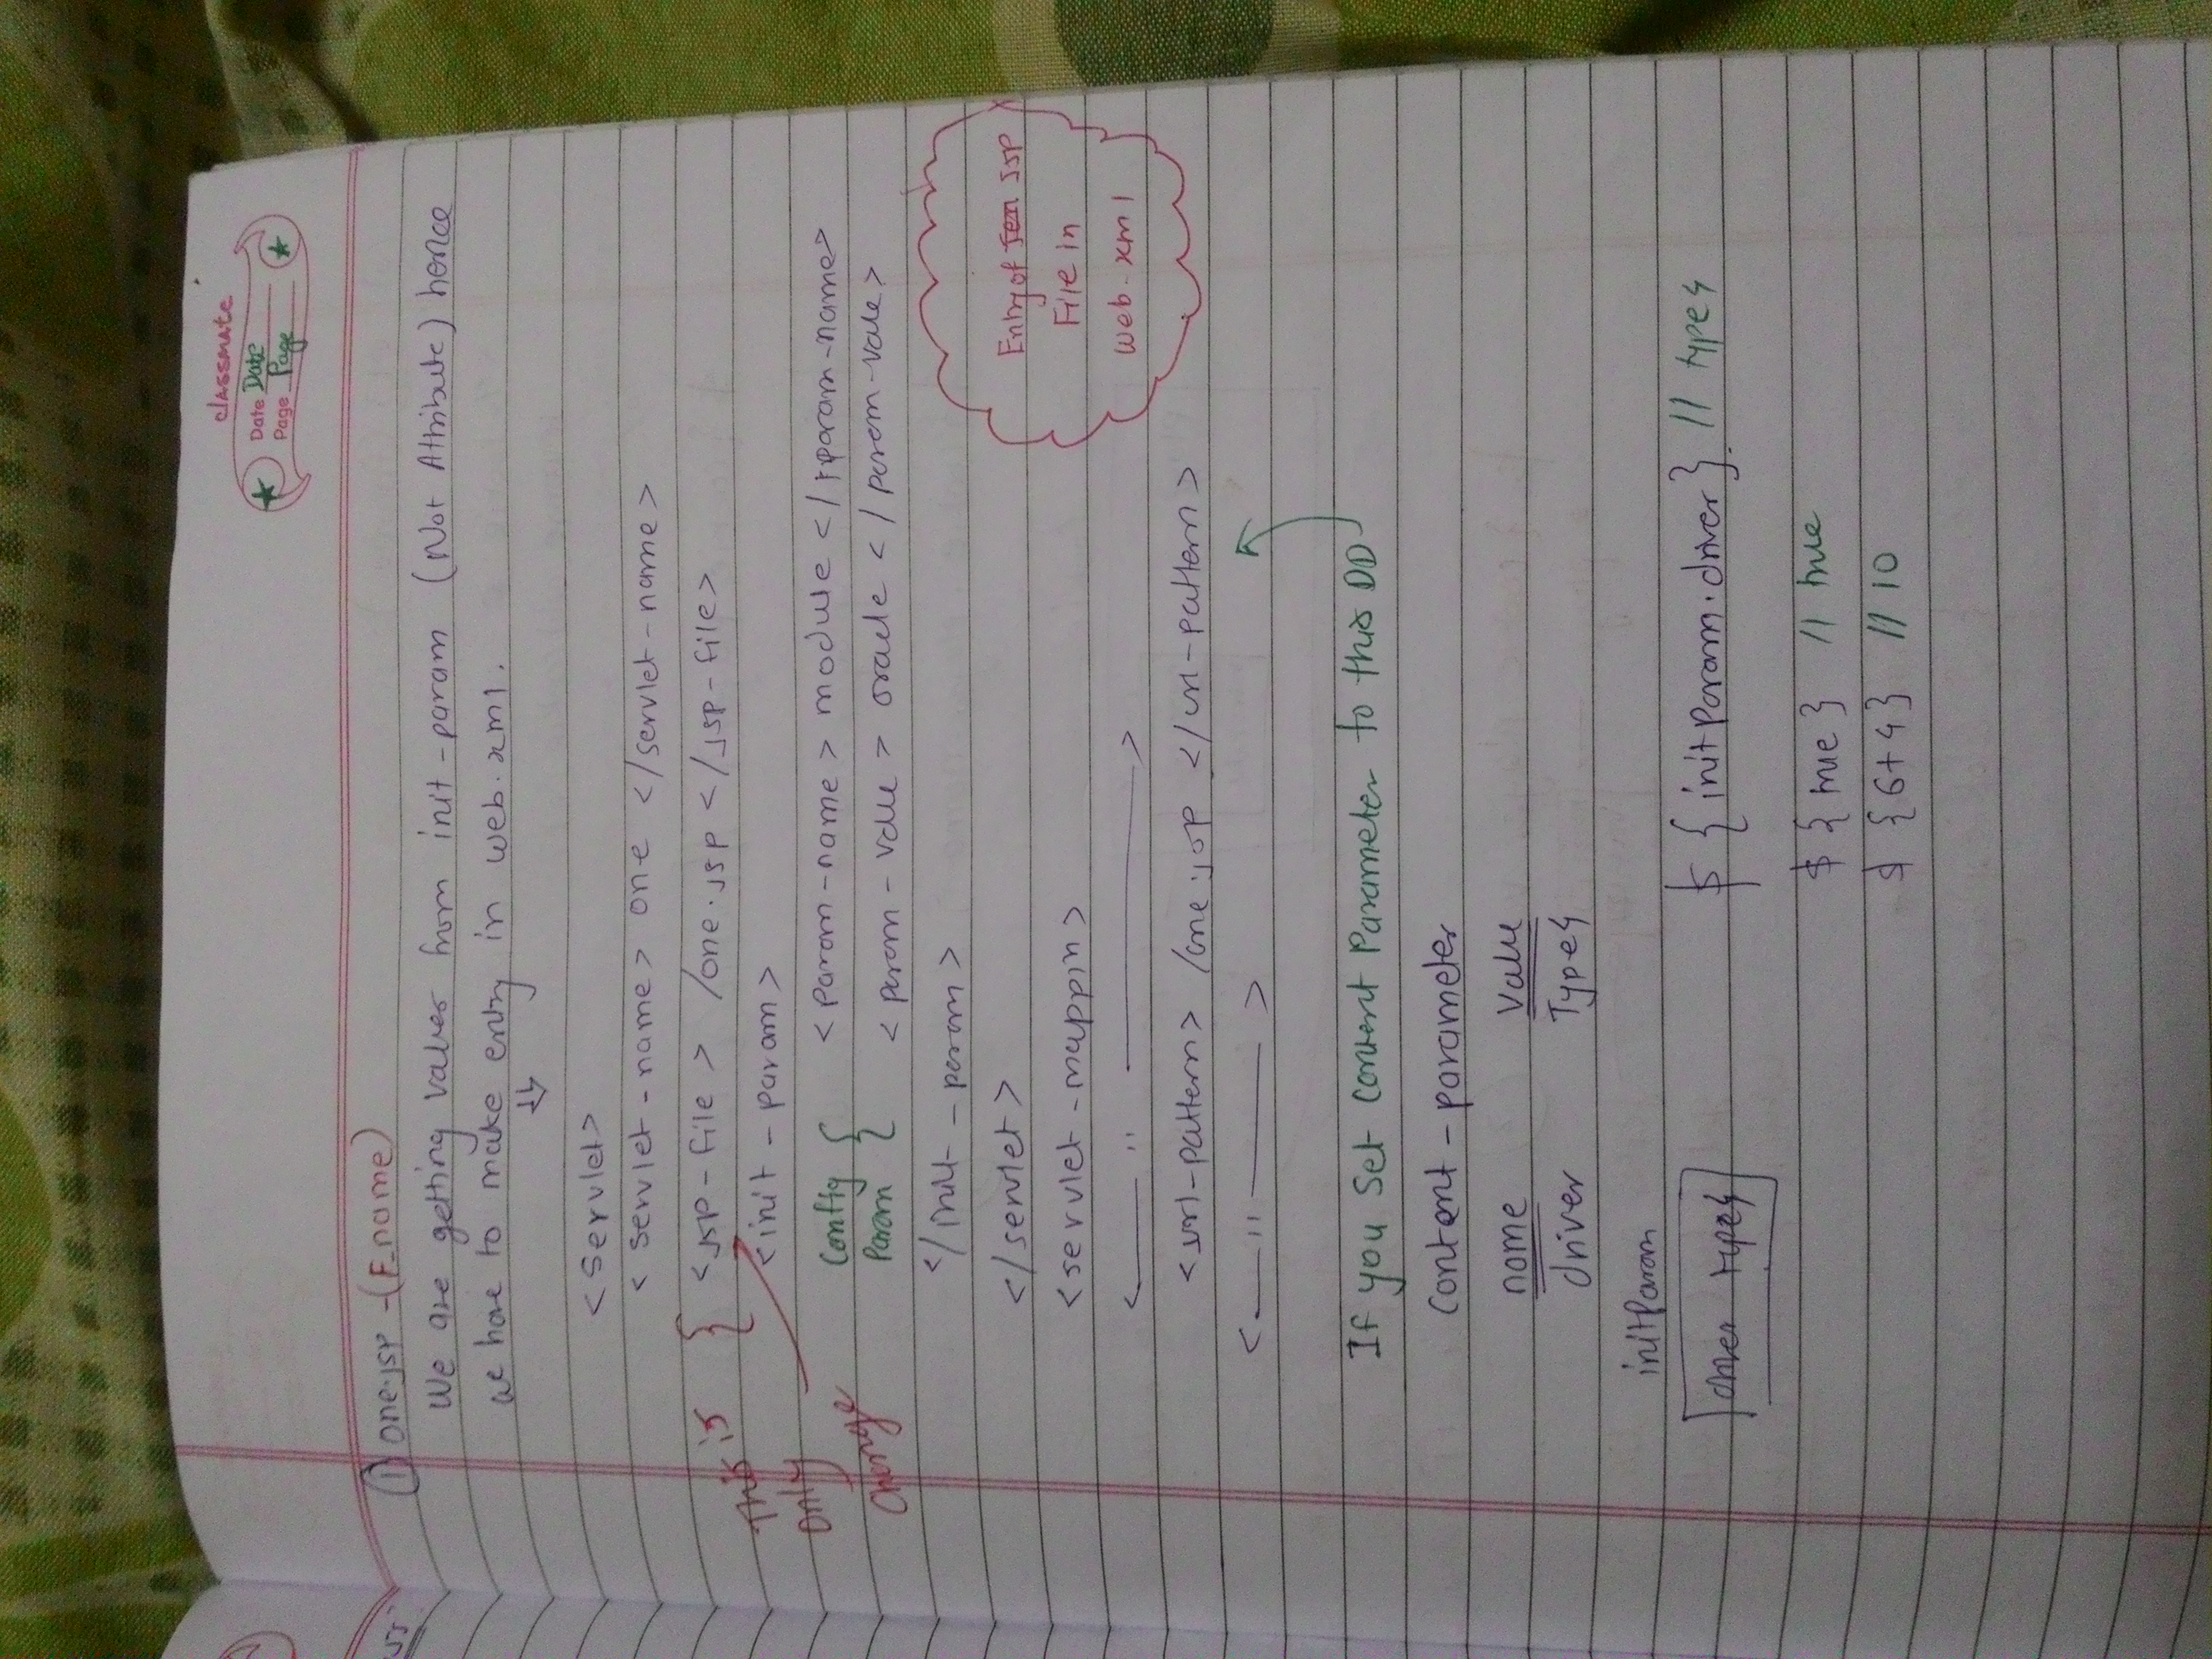 classmate
Date Date
Page Page
① one.jsp - (F_name)
We are getting values from init-param (Not Attribute) hence
we have to make entry in web.xml.
⇓
<servlet>
<servlet-name> one </servlet-name>
This is only change
{ <jsp-file> /one.jsp </jsp-file>
<init-param>
Config Param {
<param-name> module </param-name>
<param-value> oracle </param-value>
</init-param>
</servlet>
Entry of JSP
File in
web.xml
<servlet-mappin>
<—— " ————>
<url-pattern> /one.jsp </url-pattern>
<—— " ———>
If you Set Content Parameter to this DD
Content-parameter
name value
driver Type4
initParam
driver type4
${initParam.driver} // type4
${true} // true
${6+4} // 10